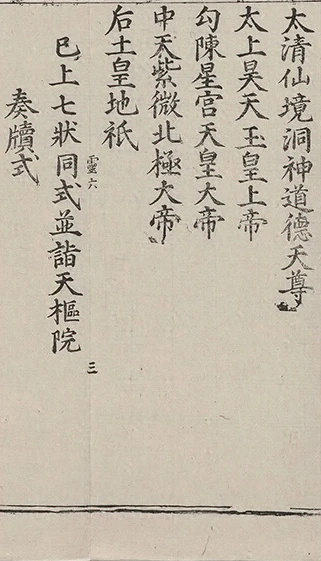 太清仙境洞神道德天尊
太上昊天玉皇上帝
勾陳星宫天皇大帝
中天紫微北極大帝
后土皇地祇
巳上七狀同式並詣天樞院
靈六
三
奏牘式